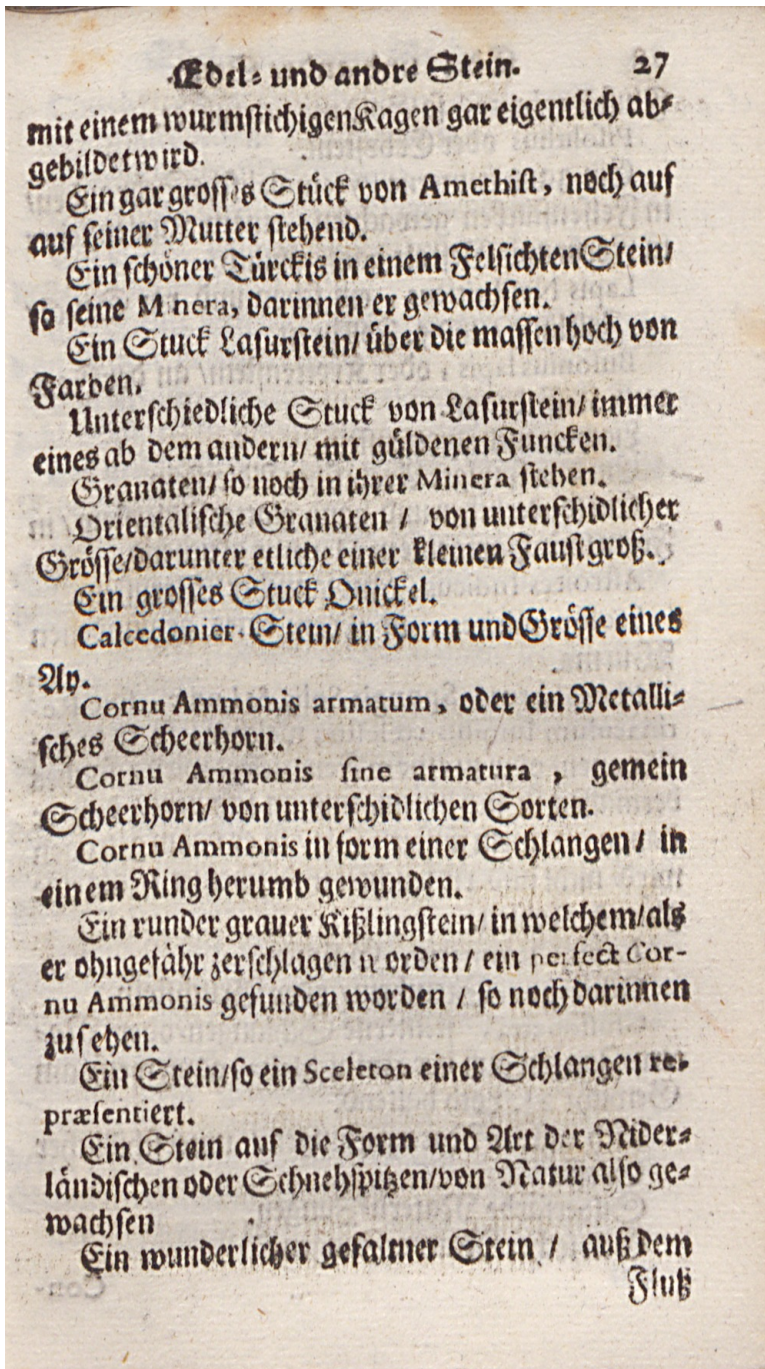 Edel- und andre Stein. 27
mit einem wurmstichigen Kagen gar eigentlich ab-
gebildet wird.
Ein gar grosses Stück von Amethist, noch auf
auf seiner Mutter stehend.
Ein schöner Türckis in einem Felsichten Stein/
so seine Minera, darinnen er gewachsen.
Ein Stuck Lasurstein/ über die massen hoch von
Farben.
Unterschiedliche Stuck von Lasurstein/ immer
eines ab dem andern/ mit güldenen Funcken.
Granaten/ so noch in ihrer Minera stehen.
Orientalische Granaten / von unterschidlicher
Grösse/ darunter etliche einer kleinen Faust groß.
Ein grosses Stuck Onickel.
Calcedonier-Stein/ in Form und Grösse eines
Ay.
Cornu Ammonis armatum, oder ein Metalli-
sches Scheerhorn.
Cornu Ammonis sine armatura, gemein
Scheerhorn/ von unterschidlichen Sorten.
Cornu Ammonis in form einer Schlangen / in
einem Ring herumb gewunden.
Ein runder grauer Kißlingstein/ in welchem/ als
er ohngefähr zerschlagen worden / ein perfect Cor-
nu Ammonis gefunden worden / so noch darinnen
zusehen.
Ein Stein/ so ein Sceleton einer Schlangen re-
præsentiert.
Ein Stein auf die Form und Art der Nider-
ländischen oder Schnehspitzen/ von Natur also ge-
wachsen
Ein wunderlicher gefaltner Stein / auß dem
Fluß